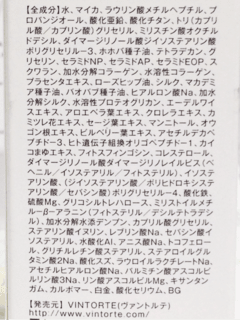 【全成分】水、マイカ、ラウリン酸メチルヘプチル、プ
ロパンジオール、酸化亜鉛、酸化チタン、トリ(カプリ
ル酸/カプリン酸)グリセリル、ミリスチン酸オクチル
ドデシル、ダイマージリノール酸ジイソステアリン酸
ポリグリセリル-3、ホホバ種子油、テトラデカン、グ
リセリン、セラミドNP、セラミドAP、セラミドEOP、ス
クワラン、加水分解コラーゲン、水溶性コラーゲン、
プラセンタエキス、ローズヒップ油、シルク、マカデミ
ア種子油、アボカド油、バオバブ種子油、ヒアルロン酸Na、加水
分解シルク、水溶性プロテオグリカン、エーデルワイ
スエキス、アロエベラ葉エキス、クロレラエキス、カ
ミツレ花エキス、セージ葉エキス、マンニトール、オウ
ゴン根エキス、ビルベリー葉エキス、アセチルデカペ
プチド-3、ヒト遺伝子組換オリゴペプチド-1、カイ
コまゆエキス、フィトスフィンゴシン、コレステロール、
ダイマージリノール酸ダイマージリノレイルビス(ベ
ヘニル/イソステアリル/フィトステリル)、イソステア
リン酸、(ジイソステアリン酸/ポリヒドロキシステ
アリン酸/セバシン酸)ポリグリセリル-4、酸化鉄、
硫酸Mg、グリコシルトレハロース、ミリストイルメチ
ル-β-アラニン(フィトステリル/デシルテトラデシ
ル)、加水分解水添デンプン、カプリル酸グリセリル、
ステアリン酸イヌリン、レブリン酸Na、セバシン酸イ
ソステアリル、水酸化Al、アニス酸Na、トコフェロー
ル、グリチルレチン酸ステアリル、ステアロイルグル
タミン酸2Na、酸化スズ、ラウロイルラクチレートNa、
アセチルヒアルロン酸Na、パルミチン酸アスコルビ
ルリン酸3Na、リン酸アスコルビルMg、キサンタン
ガム、カルボマー、白金、酸化セリウム、BG
【発売元】VINTORTE(ヴァントルテ)
https://www.vintorte.com